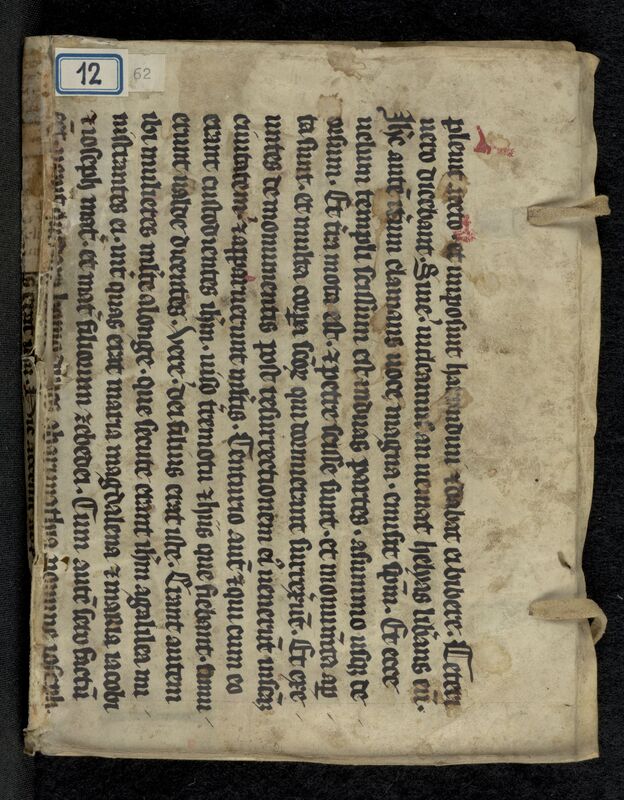 12
62
pleuit aceto. et imposuit harundini ⁊ dabat ei bibere. Ceteri
uero dicebant. Sine. uideamus an ueniat helyas liberans eū.
Ihc autē iterum clamans uoce magna. emisit sp̄m. Et ecce
uelum templi scissum est in duas partes. a summo usqꝫ de
orsum. Et terra mota est. ⁊ petre scisse sunt. et monumēta ap
ta sunt. et multa corꝑa scōꝝ qui dormierant surrexūt. Et exe
untes de monumentis post resurrectionem eꝰ uenerūt in scāꝫ
ciuitatem. ⁊ apparuerunt multis. Centurio autē ⁊ qui cum eo
erant custodientes ihm̄. uiso tremotu ⁊ hiis que fiebant. timu
erunt ualde dicentes. Vere dei filius erat iste. Erant autem
ibi mulieres mlte a longe. que secute erant ihm̄ a galilea mi
nistrantes ei. int̄ quas erat maria magdalena ⁊ maria iacobi
⁊ ioseph mat̄. et mat̄ filiorum zebedei. Cum autē sero factū
eēt. uenit homo diues ab arimathia nomine ioseph.